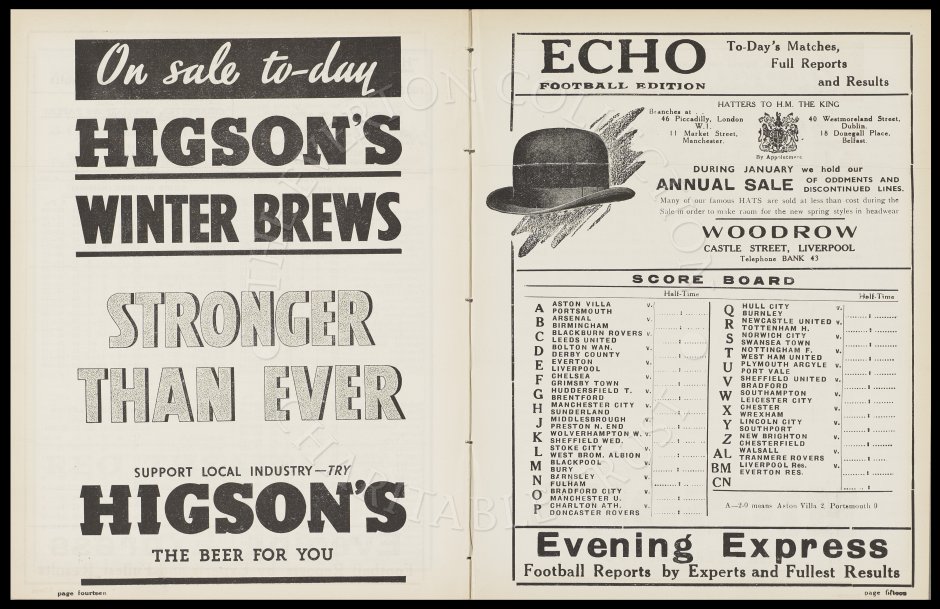 On sale to-day
HIGSON'S
WINTER BREWS
STRONGER
THAN EVER
SUPPORT LOCAL INDUSTRY—TRY
HIGSON'S
THE BEER FOR YOU
page fourteen
ECHO
FOOTBALL EDITION
To-Day's Matches,
Full Reports
and Results
HATTERS TO H.M. THE KING
Branches at
46 Piccadilly, London
W.1.
11 Market Street,
Manchester.
By Appointment
40 Westmoreland Street,
Dublin.
18 Donegall Place,
Belfast.
DURING JANUARY we hold our
ANNUAL SALE OF ODDMENTS AND
DISCONTINUED LINES.
Many of our famous HATS are sold at less than cost during the
Sale in order to make room for the new spring styles in headwear
WOODROW
CASTLE STREET, LIVERPOOL
Telephone BANK 43
SCORE BOARD
Half-Time
A ASTON VILLA v.
PORTSMOUTH
B ARSENAL v.
BIRMINGHAM
C BLACKBURN ROVERS v.
LEEDS UNITED
D BOLTON WAN. v.
DERBY COUNTY
E EVERTON v.
LIVERPOOL
F CHELSEA v.
GRIMSBY TOWN
G HUDDERSFIELD T. v.
BRENTFORD
H MANCHESTER CITY v.
SUNDERLAND
J MIDDLESBROUGH v.
PRESTON N. END
K WOLVERHAMPTON W. v.
SHEFFIELD WED.
L STOKE CITY v.
WEST BROM. ALBION
M BLACKPOOL v.
BURY
N BARNSLEY v.
FULHAM
O BRADFORD CITY v.
MANCHESTER U.
P CHARLTON ATH. v.
DONCASTER ROVERS
Half-Time
Q HULL CITY v.
BURNLEY
R NEWCASTLE UNITED v.
TOTTENHAM H.
S NORWICH CITY v.
SWANSEA TOWN
T NOTTINGHAM F. v.
WEST HAM UNITED
U PLYMOUTH ARGYLE v.
PORT VALE
V SHEFFIELD UNITED v.
BRADFORD
W SOUTHAMPTON v.
LEICESTER CITY
X CHESTER v.
WREXHAM
Y LINCOLN CITY v.
SOUTHPORT
Z NEW BRIGHTON v.
CHESTERFIELD
AL WALSALL v.
TRANMERE ROVERS
BM LIVERPOOL Res. v.
EVERTON RES.
CN
A—2-0 means Aston Villa 2 Portsmouth 0
Evening Express
Football Reports by Experts and Fullest Results
page fifteen